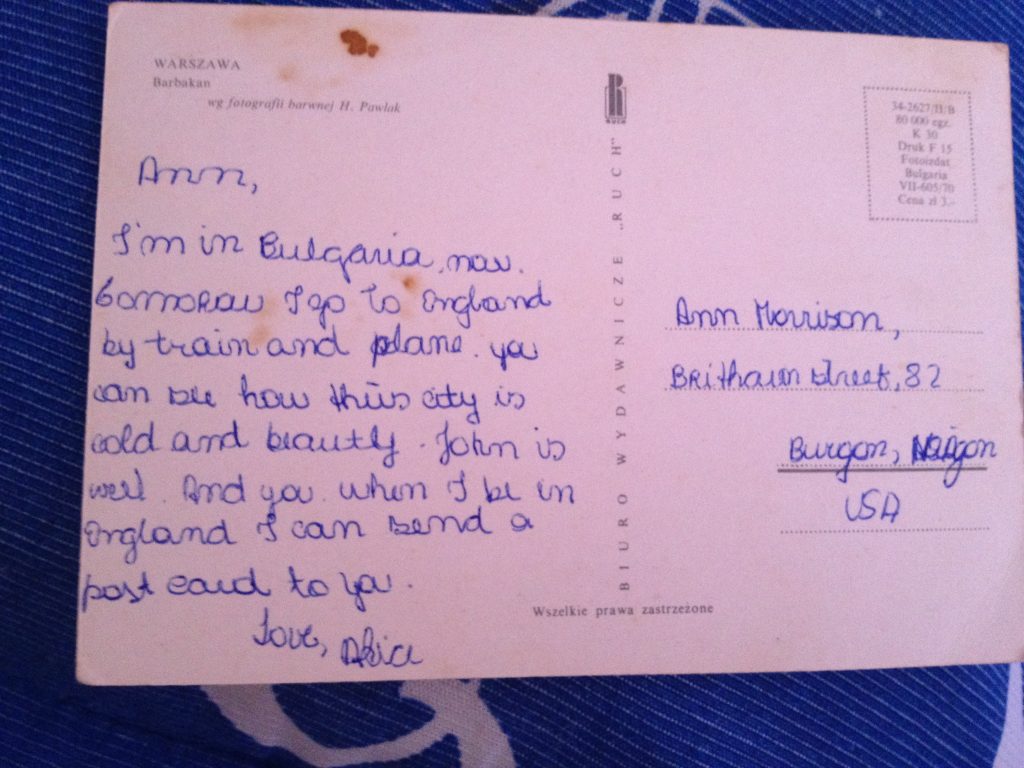 WARSZAWA
Barbakan
wg fotografii barwnej H. Pawlak
Ann,
I'm in Bulgaria, now.
Tomorow I go to England
by train and plane. you
can see how this city is
cold and beautly. John is
well. And you. when I be in
England I can send a
post card to you.
Love, Alice
RUCH
BIURO WYDAWNICZE „RUCH"
34-2627/II/B
80 000 egz.
K 30
Druk F 15
Fotoizdat
Bulgaria
VII-605/70
Cena zł 3.-
Ann Morrison,
Street, 82
Burgon,
USA
Wszelkie prawa zastrzeżone